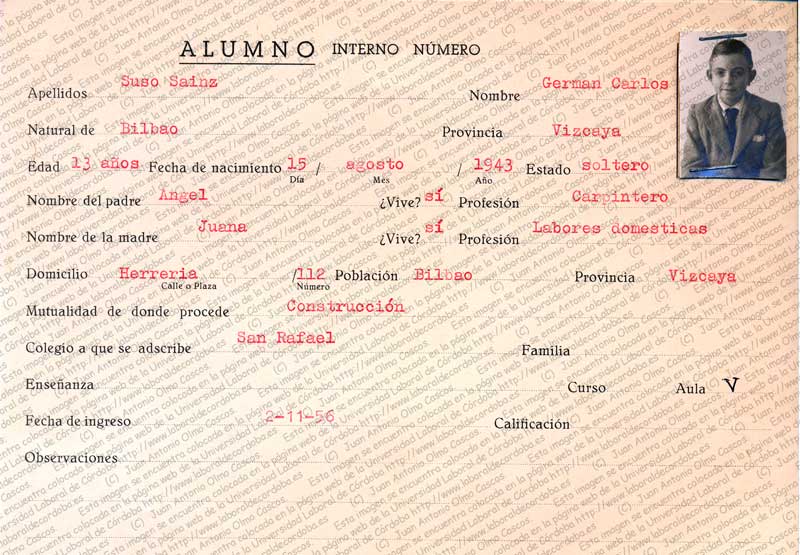 ALUMNO INTERNO NÚMERO
Apellidos Suso Sainz Nombre German Carlos
Natural de Bilbao Provincia Vizcaya
Edad 13 años Fecha de nacimiento 15 / agosto / 1943 Estado soltero
Día Mes Año
Nombre del padre Angel ¿Vive? sí Profesión Carpintero
Nombre de la madre Juana ¿Vive? sí Profesión Labores domesticas
Domicilio Herreria /112 Población Bilbao Provincia Vizcaya
Calle o Plaza Número
Mutualidad de donde procede Construcción
Colegio a que se adscribe San Rafael Familia
Enseñanza Curso Aula V
Fecha de ingreso 2-11-56 Calificación
Observaciones
Esta imagen se encuentra colocada en la página web de la Universidad Laboral de Córdoba http://www.laboraldecordoba.es (C) Juan Antonio Olmo Cascos